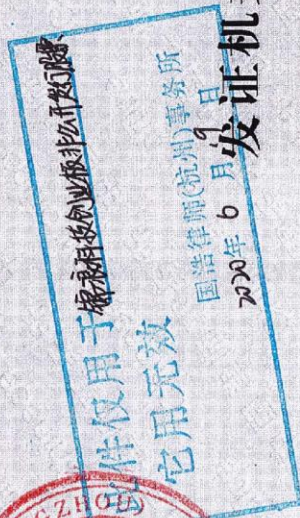 此件仅用于锦浪科技创业板非公开发行股票
它用无效
国浩律师(杭州)事务所
2020年6月9日
发证机
GZHOU